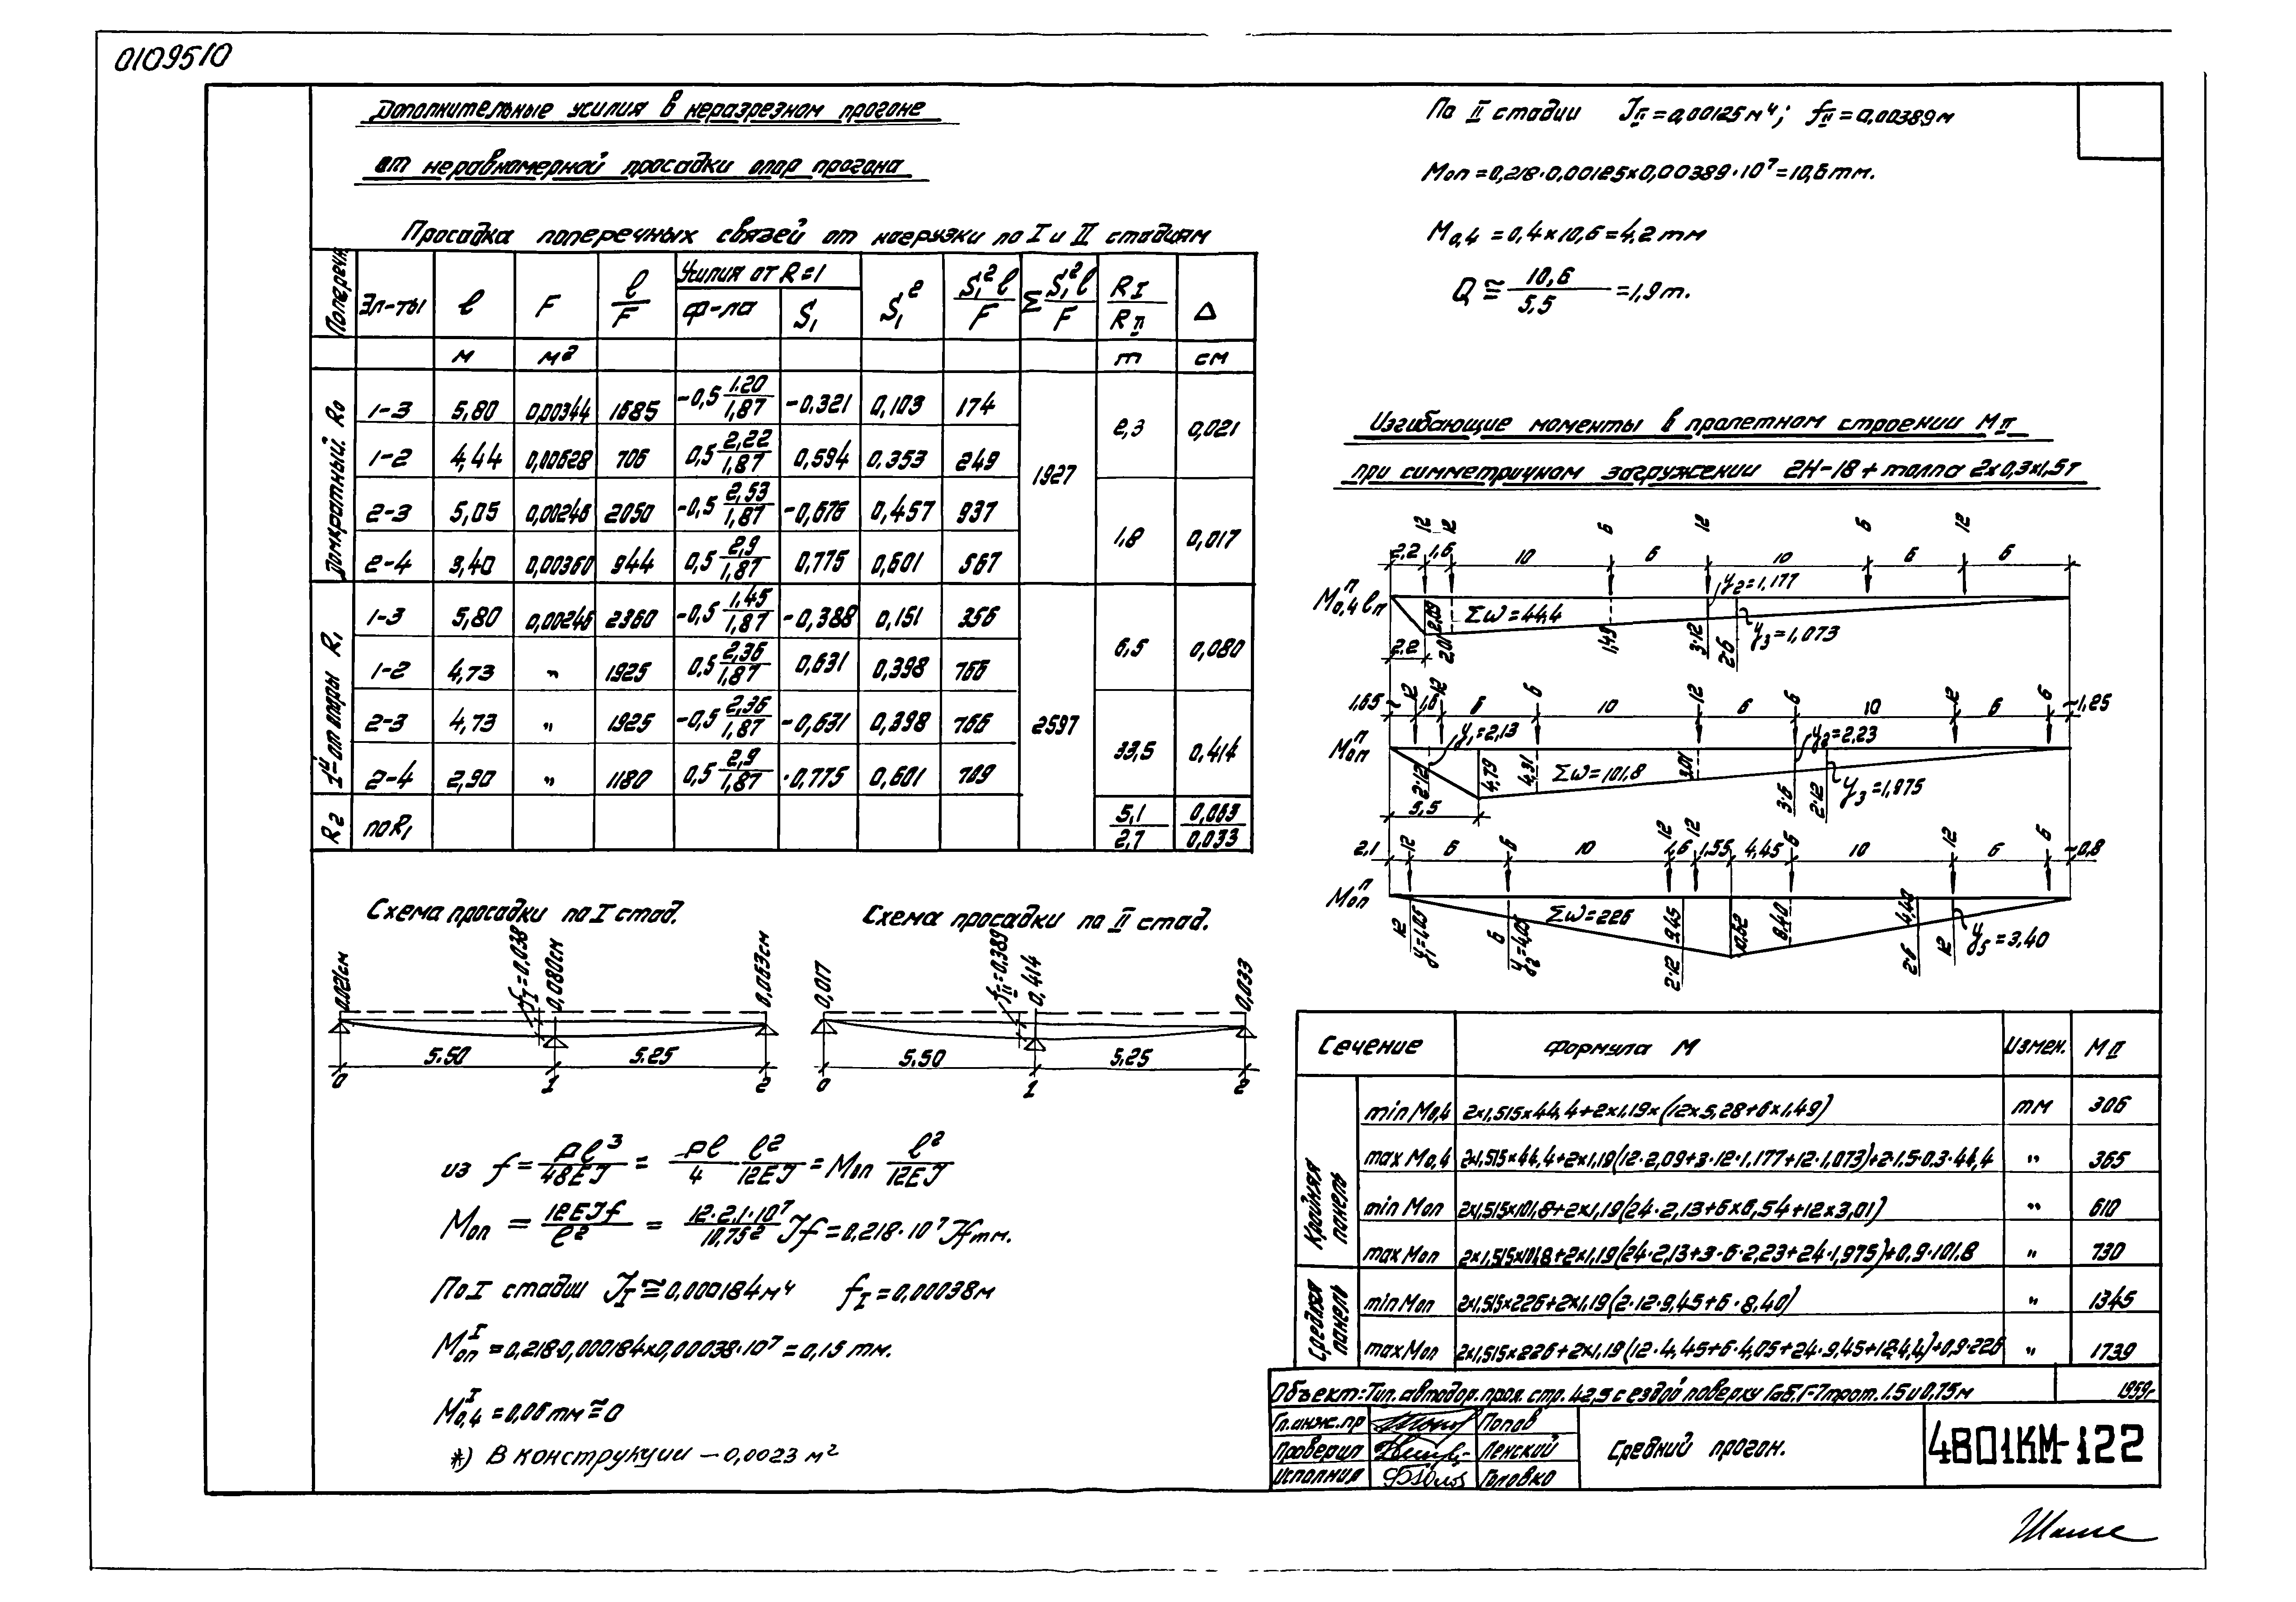 0109510
Дополнительные усилия в неразрезном прогоне
от неравномерной просадки опор прогона
Просадка поперечных связей от нагрузки по I и II стадиям
Поперечн. Эл-ты l F l/F Усилия от R=1 S₁² S₁²l/F Σ S₁²l/F R I / R II Δ
ф-ла S₁
м м² т см
Домкратный. R₀
1-3 5,80 0,00344 1685 -0,5 1.20/1,87 -0,321 0,103 174 1927 2,3 0,021
1-2 4,44 0,00628 706 0,5 2,22/1,87 0,594 0,353 249
2-3 5,05 0,00246 2050 -0,5 2,53/1,87 -0,676 0,457 937 1,8 0,017
2-4 3,40 0,00360 944 0,5 2,9/1,87 0,775 0,601 567
1й от опоры R₁
1-3 5,80 0,00246 2360 -0,5 1,45/1,87 -0,388 0,151 356 2597 6,5 0,080
1-2 4,73 " 1925 0,5 2,36/1,87 0,631 0,398 766
2-3 4,73 " 1925 -0,5 2,36/1,87 -0,631 0,398 766 33,5 0,414
2-4 2,90 " 1180 0,5 2,9/1,87 0,775 0,601 709
R₂ по R₁ 5,1/2,7 0,063/0,033
Схема просадки по I стад.
0,021см f I = 0,038 0,080см 0,063см
5.50 5.25
0 1 2
Схема просадки по II стад.
0,017 f II = 0,389 0,414 0,033
5,50 5,25
0 1 2
из f = Pl³/48EJ = Pl/4 · l²/12EJ = Mоп l²/12EJ
Mоп = 12EJf/l² = 12·2,1·10⁷/10,75² Jf = 0,218·10⁷ Jf тм.
По I стадии J I ≅ 0,000184м⁴ f I = 0,00038м
M I оп = 0,218·0,000184×0,00038·10⁷ = 0,15 тм.
M I 0,4 = 0,06 тм ≅ 0
*) В конструкции — 0,0023 м²
По II стадии J II = 0,00125м⁴; f II = 0,00389м
Mоп = 0,218·0,00125×0,00389·10⁷ = 10,6 тм.
M0,4 = 0,4×10,6 = 4,2 тм
Q ≅ 10,6/5,5 = 1,9 т.
Изгибающие моменты в пролетном строении M II
при симметричном загружении 2Н-18 + толпа 2×0,3×1,5т
12 12 6 12 6 12
2,2 1,6 10 6 10 6 6
M п 0,4 lп Σω = 44,4 y₂ = 1,177 y₃ = 1,073
2,09 2,01 1,49 3·12 2·6
2,2
12 12 6 12 6 12 6
1,65 1,6 6 10 6 10 6 1,25
M п оп y₁ = 2,13 Σω = 101,8 y₂ = 2,23 y₃ = 1,975
2·12 4,79 4,31 3,01 3·6 2·12
5,5
12 6 12 12 6 12 6
2,1 6 10 1,6 1,55 4,45 10 6 0,8
M п оп Σω = 226
12 y₁ = 1,05 6 y₂ = 4,05 2·12 9,45 10,62 8,40 2·6 4,40 12 y₅ = 3,40
Сечение Формула M Измен. M II
Крайняя панель
min M0,4 2×1,515×44,4+2×1,19×(12×5,28+6×1,49) тм 306
max M0,4 2×1,515×44,4+2×1,19(12·2,09+3·12·1,177+12·1,073)+2·1.5·0.3·44,4 " 365
min Mоп 2×1,515×101,8+2×1,19(24·2,13+6×6,54+12×3,01) " 610
max Mоп 2×1,515×101,8+2×1,19(24·2,13+3·6·2,23+24·1,975)+0,9·101.8 " 730
Средняя панель
min Mоп 2×1,515×226+2×1,19(2·12·9,45+6·8,40) " 1345
max Mоп 2×1,515×226+2×1,19(12·4,45+6·4,05+24·9,45+12·4,4)+0,9·226 " 1739
Объект: Тип. автодор. прол. стр. 42,5 с ездой поверху Г-7 трот. 1.5 и 0,75м 1959г
Гл. инж. пр Попов
Проверил Ленский
Исполнил Головко
Средний прогон.
4801КМ-122